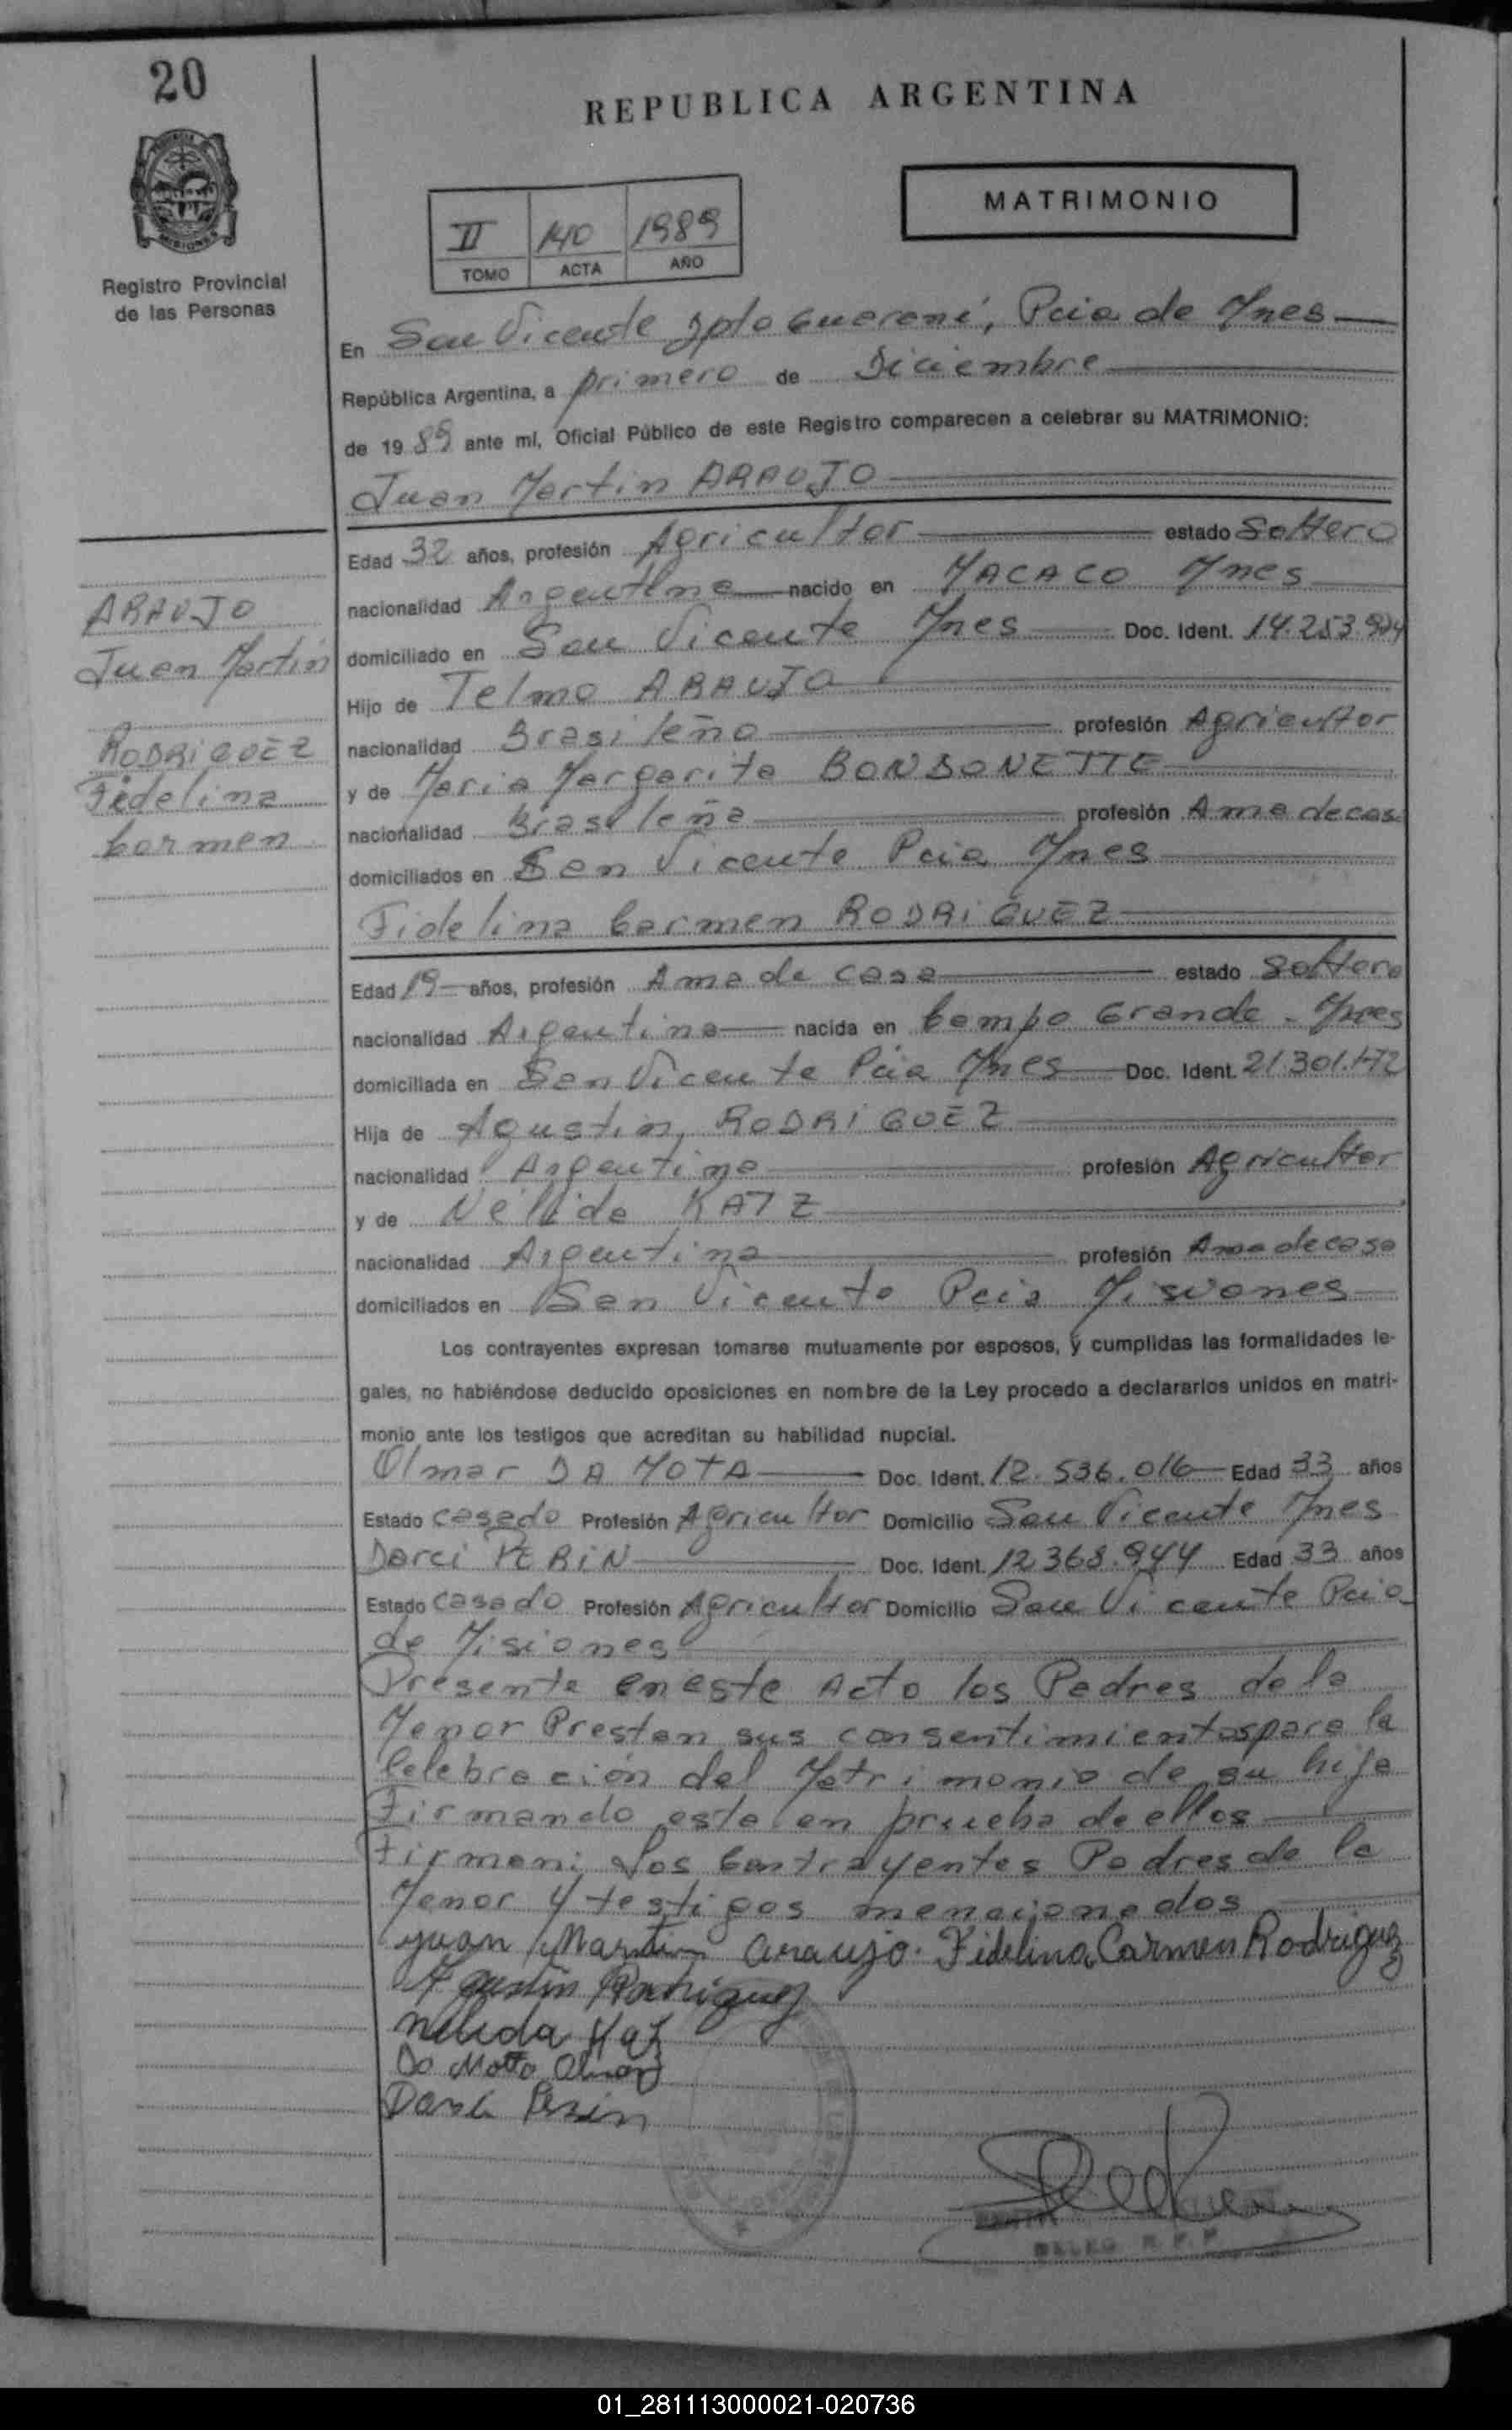 20
REPUBLICA ARGENTINA
MATRIMONIO
II 140 1989
TOMO ACTA AÑO
Registro Provincial
de las Personas
En San Vicente Dpto Guarani, Pcia de Mnes
República Argentina, a primero de Diciembre
de 1989 ante mí, Oficial Público de este Registro comparecen a celebrar su MATRIMONIO:
Juan Martin ARAUJO
Edad 32 años, profesión Agricultor estado Soltero
nacionalidad Argentina nacido en MACACO Mnes
domiciliado en San Vicente Mnes Doc. Ident. 14.253.904
Hijo de Telmo ARAUJO
nacionalidad Brasileña profesión Agricultor
y de Maria Margarita BONBONETTE
nacionalidad Brasileña profesión Ama de casa
domiciliados en San Vicente Pcia Mnes
Fidelina Carmen RODRIGUEZ
ARAUJO
Juan Martin
RODRIGUEZ
Fidelina
Carmen
Edad 19 años, profesión Ama de casa estado Soltera
nacionalidad Argentina nacida en Campo Grande - Mnes
domiciliada en San Vicente Pcia Mnes Doc. Ident. 21.301.172
Hija de Agustin RODRIGUEZ
nacionalidad Argentina profesión Agricultor
y de Nelida KATZ
nacionalidad Argentina profesión Ama de casa
domiciliados en San Vicente Pcia Misiones
Los contrayentes expresan tomarse mutuamente por esposos, y cumplidas las formalidades le-
gales, no habiéndose deducido oposiciones en nombre de la Ley procedo a declararlos unidos en matri-
monio ante los testigos que acreditan su habilidad nupcial.
Olmar DA MOTA Doc. Ident. 12.536.016 Edad 33 años
Estado casado Profesión Agricultor Domicilio San Vicente Mnes
Darci PERIN Doc. Ident. 12368.944 Edad 33 años
Estado casado Profesión Agricultor Domicilio San Vicente Pcia
de Misiones
Presente en este Acto los Padres de la
Menor Prestan sus consentimientos para la
Celebración del Matrimonio de su hija
Firmando esta en prueba de ellos
Firman: Los Contrayentes Padres de la
Menor y testigos mencionados
Juan Martin Araujo. Fidelina Carmen Rodriguez
Agustin Rodriguez
Nelida Katz
Da Motta Olmar
Darci Perin
DELEG. R. P. P.
01_281113000021-020736